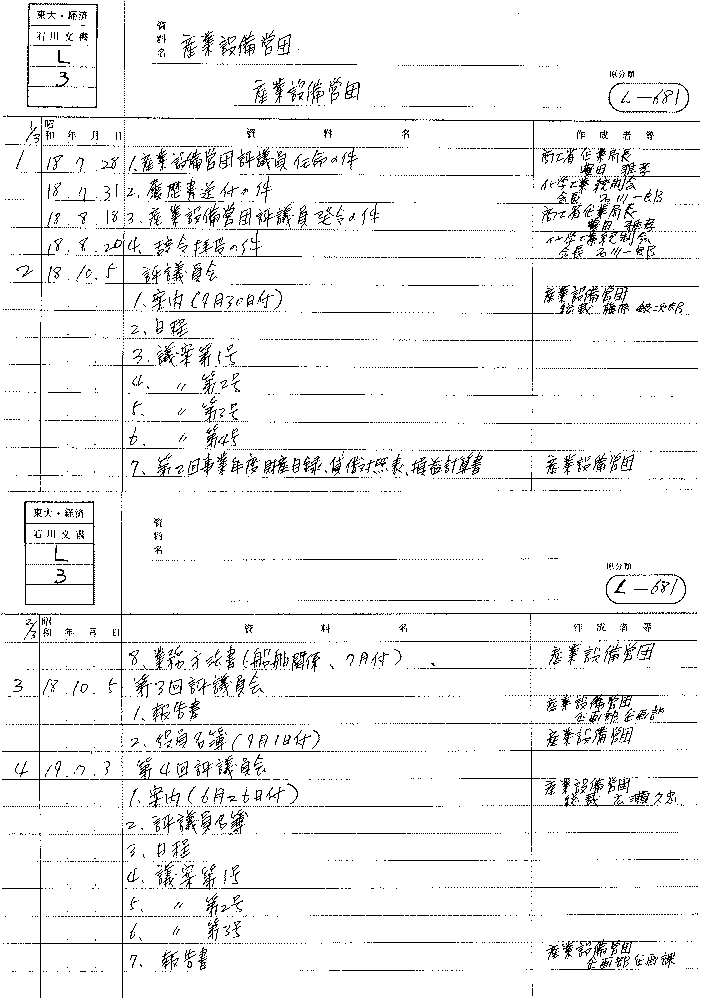 東大・経済
石川文書
L
3
資料名 産業設備営団
産業設備営団
原分類
L-681
1/3 昭和 年 月 日 資 料 名 作成者等
1 18.7.28 1.産業設備営団評議員任命の件 商工省企業局長 豊田雅孝
18.7.31 2.履歴書送付の件 化学工業統制会 会長 石川一郎
18.8.18 3.産業設備営団評議員発令の件 商工省企業局長 豊田雅孝
18.8.20 4.辞令拝受の件 化学工業統制会 会長 石川一郎
2 18.10.5 評議員会
1.案内(9月30日付) 産業設備営団 総裁 藤原銀次郎
2.日程
3.議案第1号
4. 〃 第2号
5. 〃 第3号
6. 〃 第4号
7.第2回事業年度財産目録、貸借対照表、損益計算書 産業設備営団
東大・経済
石川文書
L
3
資料名
原分類
L-681
2/3 昭和 年 月 日 資 料 名 作成者等
8.業務方法書(船舶関係、7月付) 産業設備営団
3 18.10.5 第3回評議員会
1.報告書 産業設備営団 企画部企画課
2.役員名簿(9月1日付) 産業設備営団
4 19.7.3 第4回評議員会
1.案内(6月26日付) 産業設備営団 総裁 広瀬久忠
2.評議員名簿
3.日程
4.議案第1号
5. 〃 第2号
6. 〃 第3号
7.報告書 産業設備営団 企画部企画課